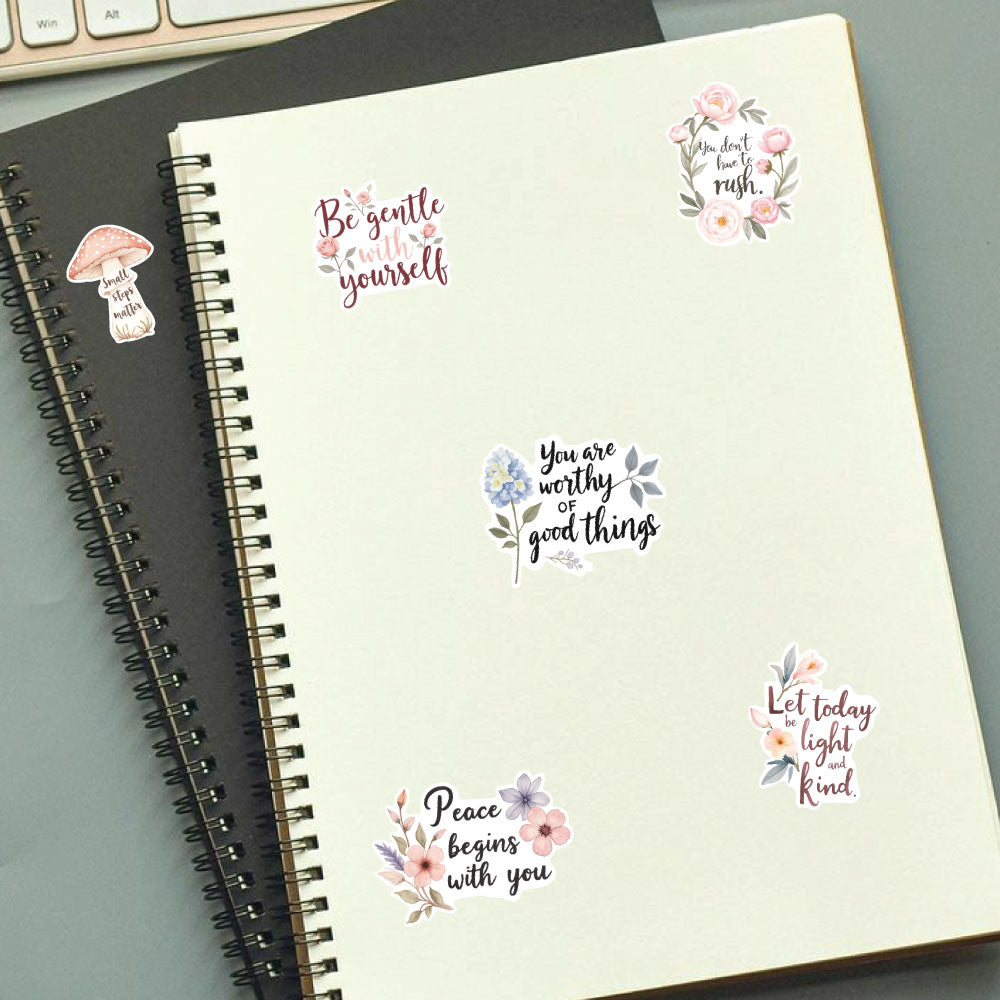 Win
Alt
You don't
have to
rush.
Be gentle
with
yourself
Small
steps
matter
You are
worthy
OF
good things
Let today
be
light
and
kind.
Peace
begins
with you